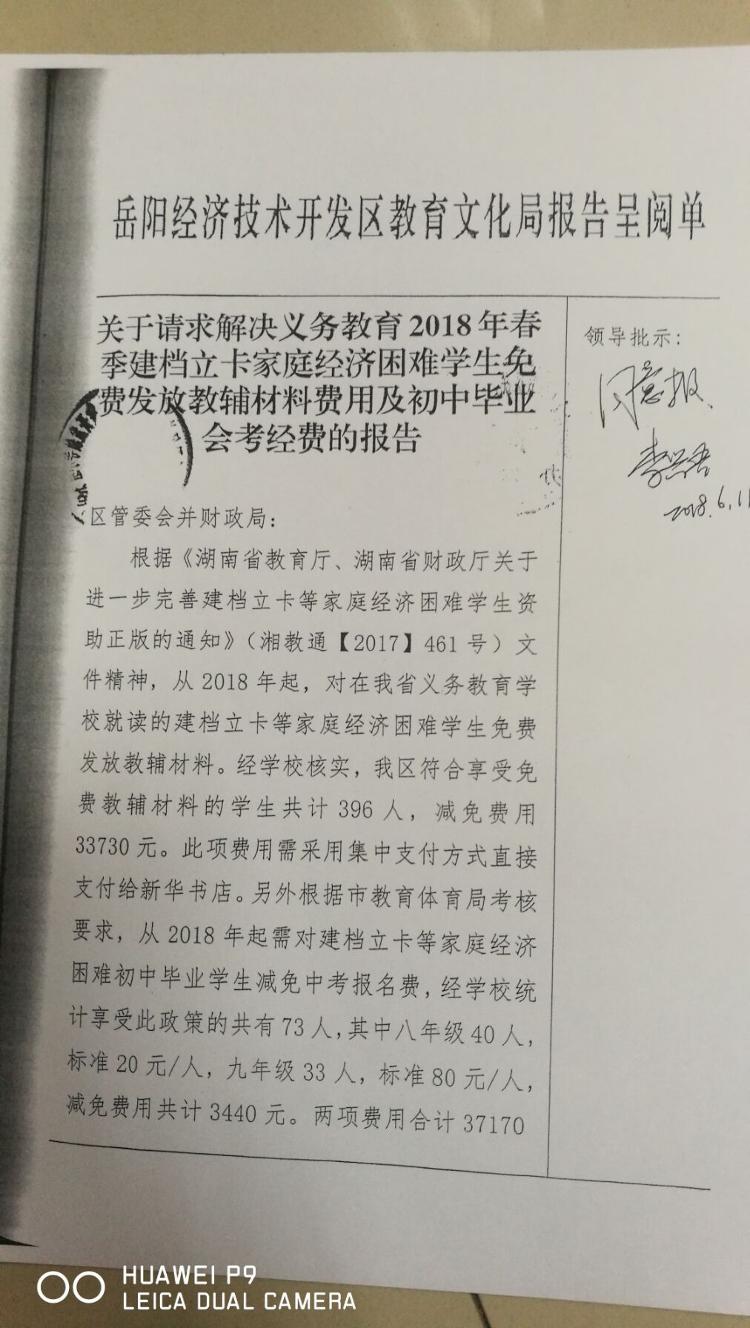 岳阳经济技术开发区教育文化局报告呈阅单
关于请求解决义务教育2018年春
季建档立卡家庭经济困难学生免
费发放教辅材料费用及初中毕业
会考经费的报告
区管委会并财政局：
根据《湖南省教育厅、湖南省财政厅关于
进一步完善建档立卡等家庭经济困难学生资
助正版的通知》（湘教通【2017】461号）文
件精神，从2018年起，对在我省义务教育学
校就读的建档立卡等家庭经济困难学生免费
发放教辅材料。经学校核实，我区符合享受免
费教辅材料的学生共计396人，减免费用
33730元。此项费用需采用集中支付方式直接
支付给新华书店。另外根据市教育体育局考核
要求，从2018年起需对建档立卡等家庭经济
困难初中毕业学生减免中考报名费，经学校统
计享受此政策的共有73人，其中八年级40人，
标准20元/人，九年级33人，标准80元/人，
减免费用共计3440元。两项费用合计37170
领导批示：
同意报、
2018.6.11
HUAWEI P9
LEICA DUAL CAMERA